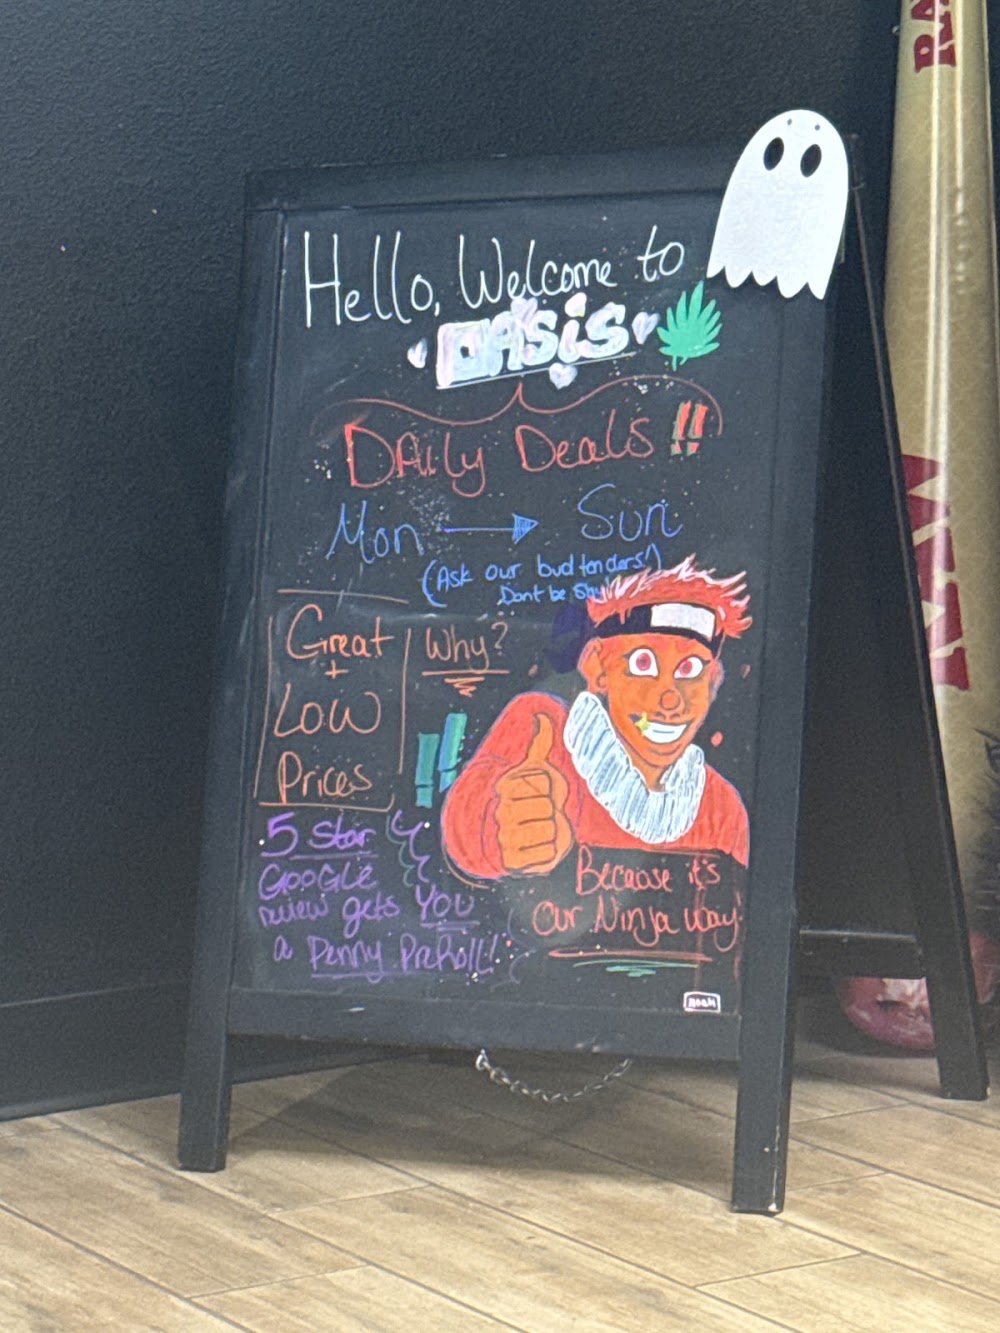 Hello, Welcome to
OASiS
DAily Deals!!
Mon → Sun
(Ask our budtenders!)
Dont be Shy!
Great
+
Low
Prices
Why?
!!
5 Star
GOOGLE
review gets YOU
a Penny PreRoll!
Because it's
Our Ninja way!
noah
RAW